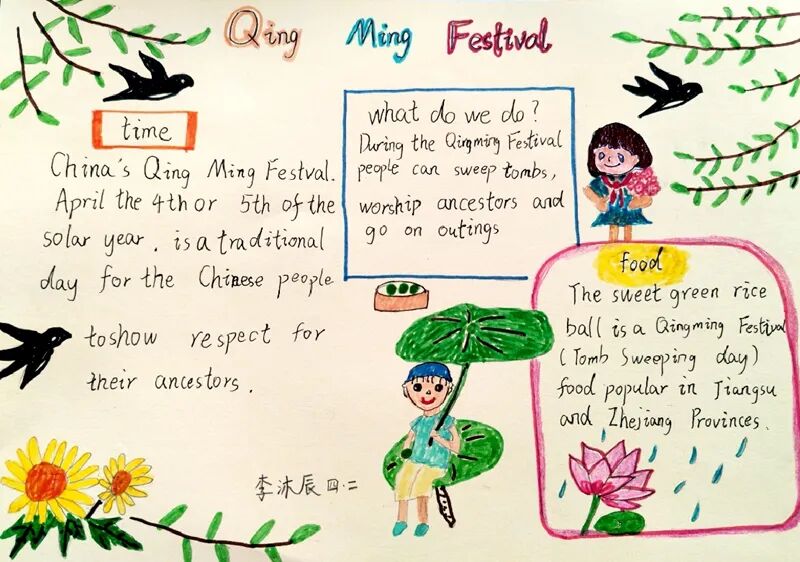 Qing Ming Festival
time
China's Qing Ming Festval.
April the 4th or 5th of the
solar year. is a traditional
day for the Chinese people
toshow respect for
their ancestors.
what do we do?
During the Qingming Festival
people can sweep tombs,
worship ancestors and
go on outings
food
The sweet green rice
ball is a Qingming Festival
(Tomb Sweeping day)
food popular in Jiangsu
and Zhejiang Provinces.
李沐辰 四·二